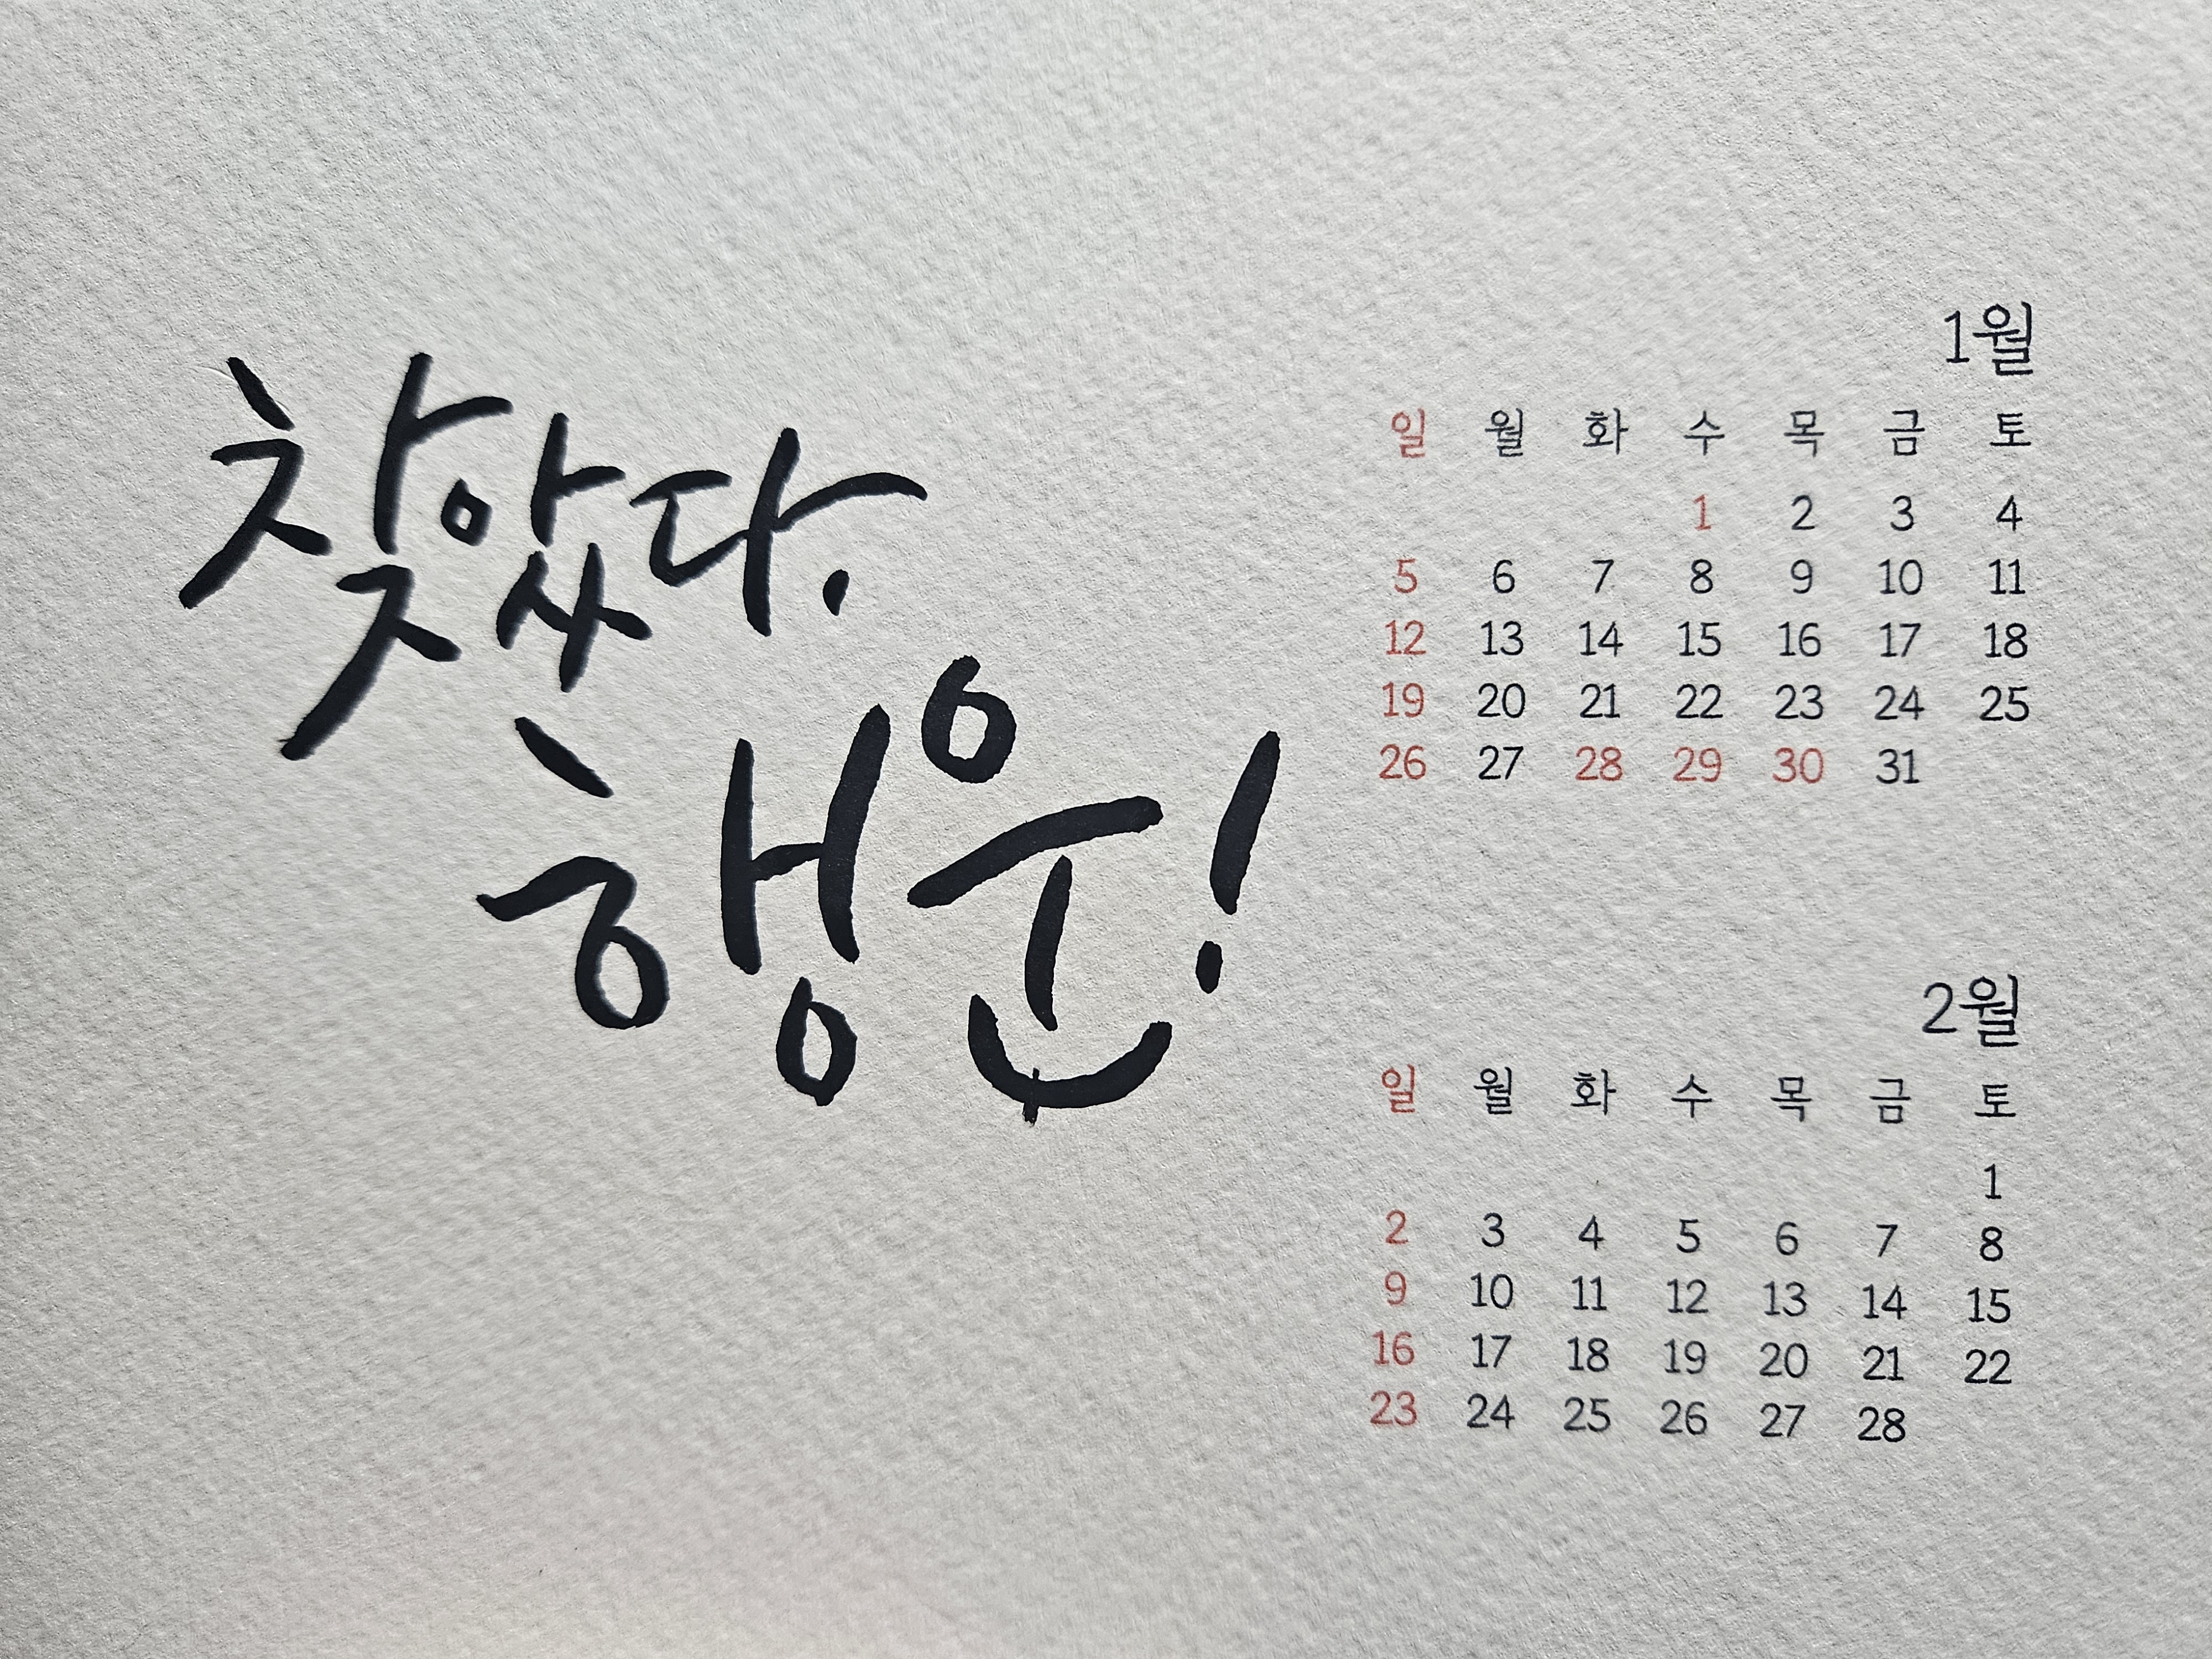 찾았다.
행운!
1월
일 월 화 수 목 금 토
1 2 3 4
5 6 7 8 9 10 11
12 13 14 15 16 17 18
19 20 21 22 23 24 25
26 27 28 29 30 31
2월
일 월 화 수 목 금 토
1
2 3 4 5 6 7 8
9 10 11 12 13 14 15
16 17 18 19 20 21 22
23 24 25 26 27 28